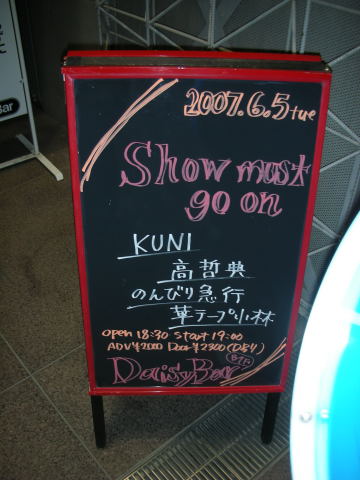 2007.6.5 tue
Show must
go on
KUNI
高哲典
のんびり急行
華テープ小林
open 18:30 start 19:00
ADV ¥2000 Door ¥2300 (D別)
Daisy Bar B1F
Bar